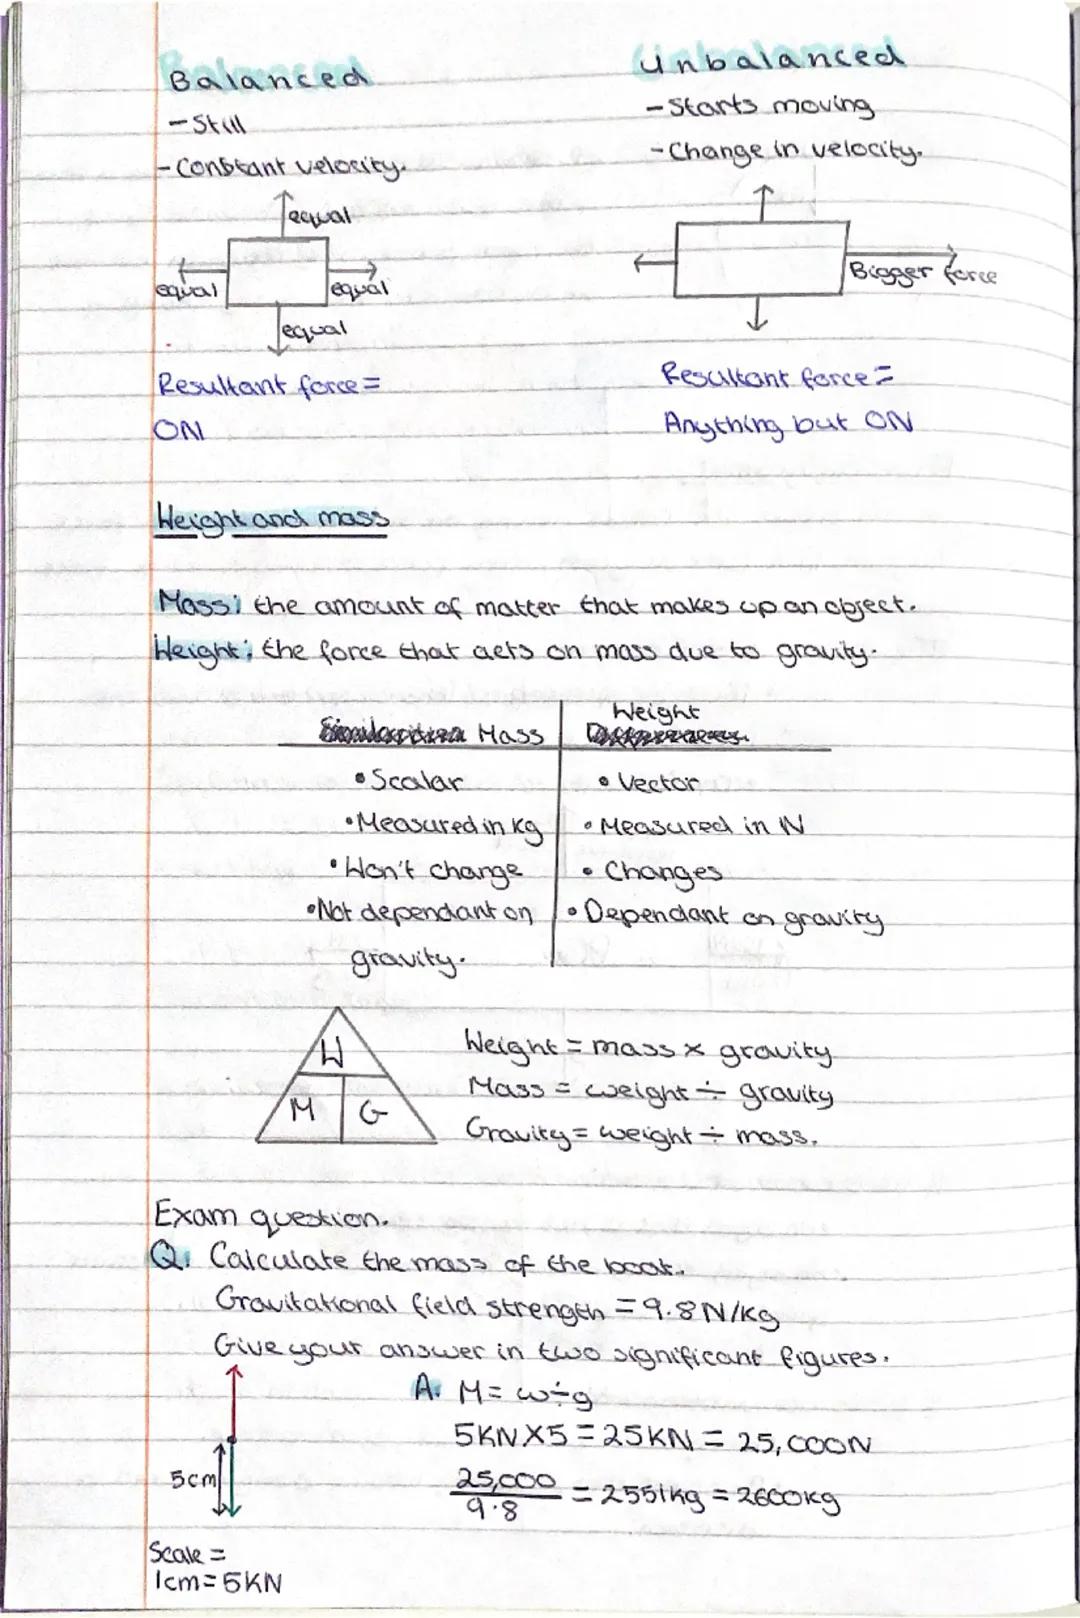 Balanced
- Still
- Constant velocity.
equal
equal
equal
equal
Resultant force =
0N
Unbalanced
- Starts moving
- Change in velocity.
Bigger force
Resultant force =
Anything but 0N
Weight and mass
Mass: the amount of matter that makes up an object.
Weight: the force that acts on mass due to gravity.
Mass
• Scalar
• Measured in kg
• Won't change
• Not dependant on
gravity.
Weight
• Vector
• Measured in N
• Changes
• Dependant on gravity
W
M G
Weight = mass x gravity
Mass = weight ÷ gravity
Gravity = weight ÷ mass.
Exam question.
Q: Calculate the mass of the boat.
Gravitational field strength = 9.8N/kg
Give your answer in two significant figures.
A: M = w÷g
5KN X 5 = 25KN = 25,000N
25,000
9.8
= 2551kg = 2600kg
5cm
Scale =
1cm = 5KN